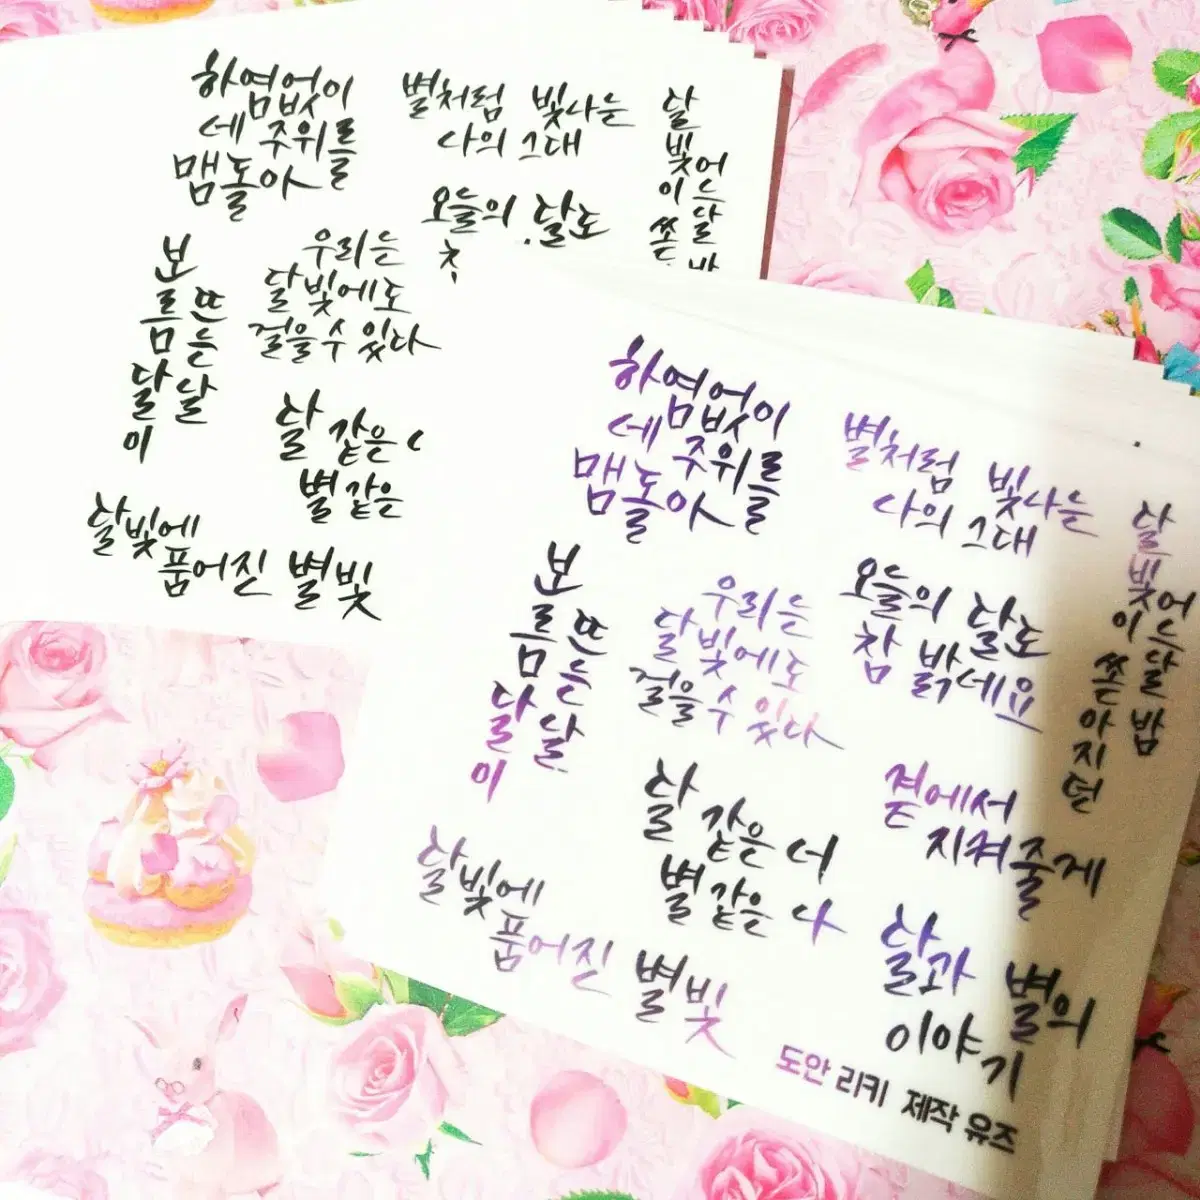 하염없이
네 주위를
맴돌아
별처럼 빛나는
나의 그대
달빛이
쏟
어느 달 바
오늘의 달도
보름달이
뜨는 날
우리는
달빛에도
걸을 수 있다
달 같은
별 같은
달빛에
품어진 별빛
하염없이
네 주위를
맴돌아
별처럼 빛나는
나의 그대
달빛이
쏟아지던
어느 달밤
오늘의 달도
참 밝네요
보름달이
뜨는 날
우리는
달빛에도
걸을 수 있다
달 같은 너
별 같은 나
곁에서
지켜줄게
달빛에
품어진 별빛
달과 별의
이야기
도안 리키 제작 유즈